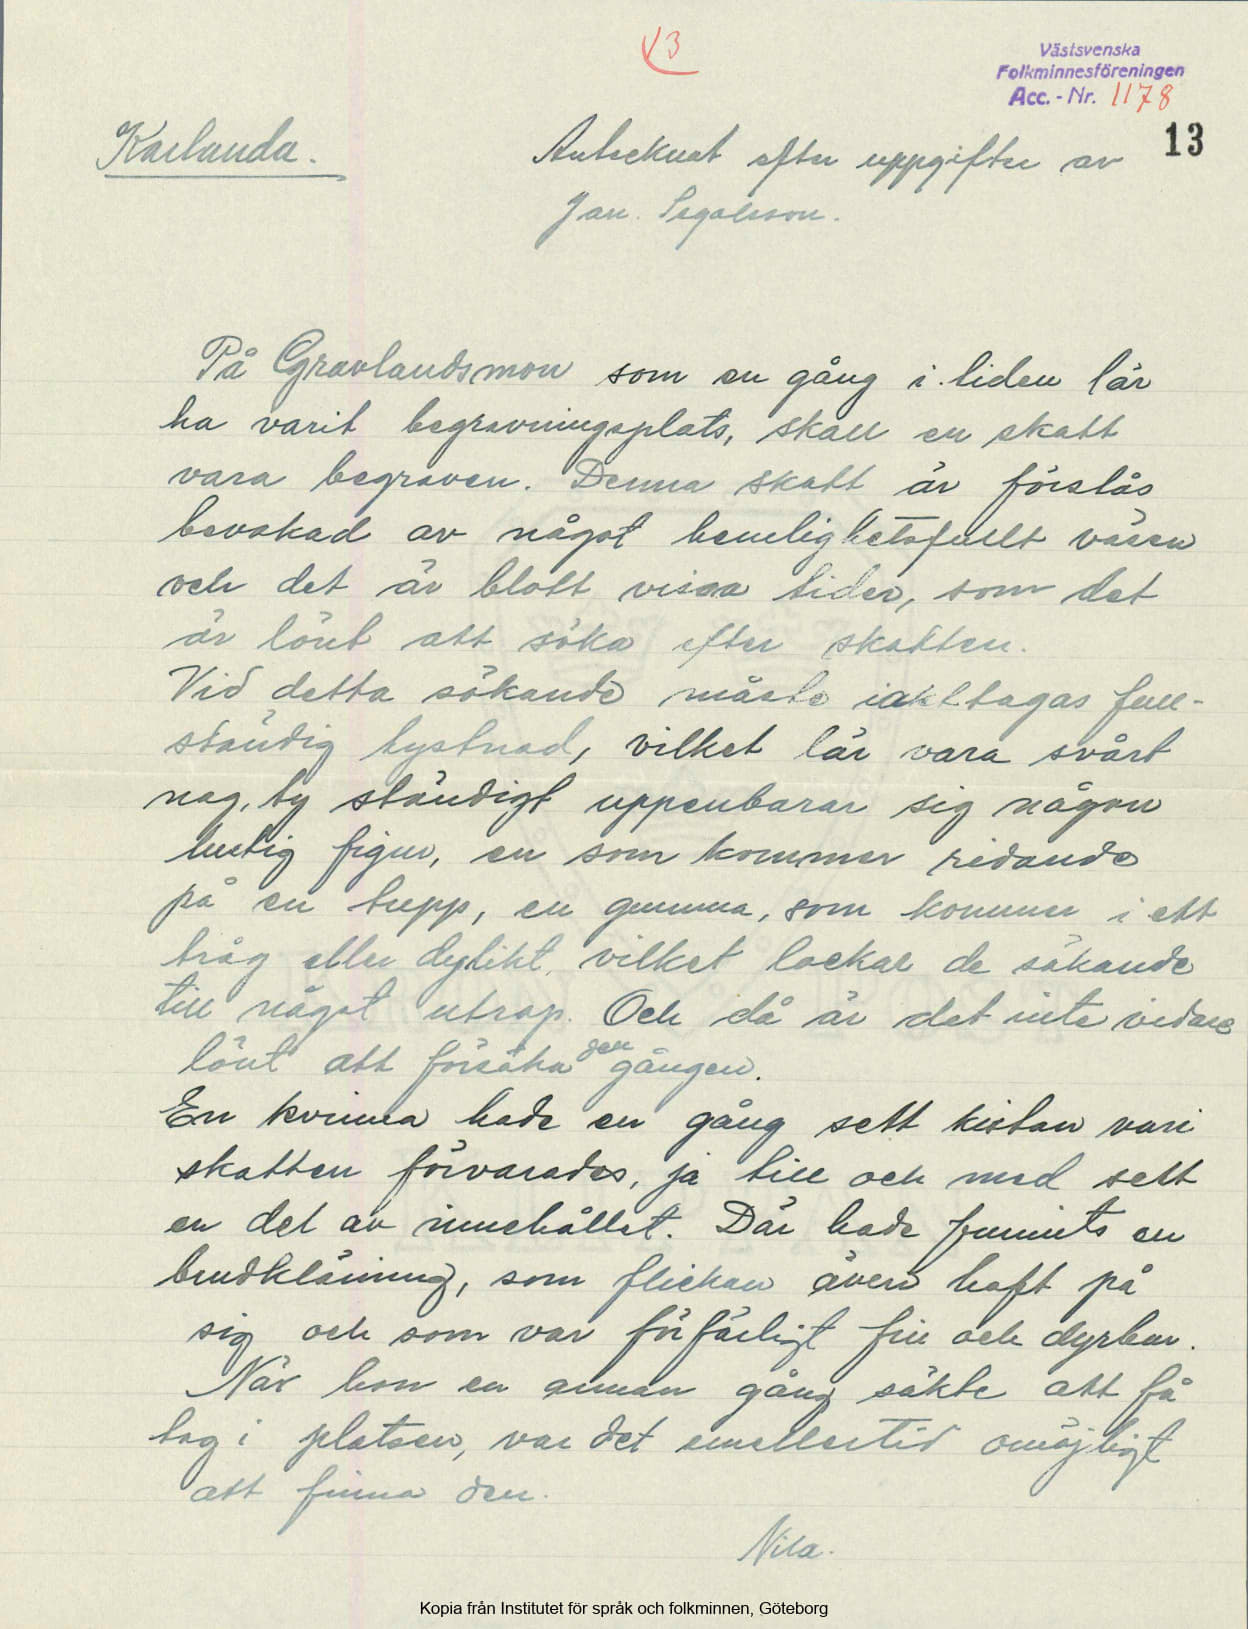 13
Västsvenska
Folkminnesföreningen
Acc. - Nr. 1178
13
Karlanda.
Antecknat efter uppgifter av
Jan. Segolsson.
På Gravlandsmon som en gång i tiden lär
ha varit begravningsplats, skall en skatt
vara begraven. Denna skatt är förstås
bevakad av något hemlighetsfullt väsen
och det är blott vissa tider, som det
är lönt att söka efter skatten.
Vid detta sökande måste iakttagas full-
ständig tystnad, vilket lär vara svårt
nog, ty ständigt uppenbarar sig någon
lustig figur, en som kommer ridande
på en tupp, en gumma, som kommer i ett
tråg eller dylikt, vilket lockar de sökande
till något utrop. Och då är det inte vidare
lönt att försöka den gången.
En kvinna hade en gång sett kistan vari
skatten förvarades, ja till och med sett
en del av innehållet. Där hade funnits en
brudklänning, som flickan även haft på
sig och som var förfärligt fin och dyrbar.
När hon en annan gång sökte att få
tag i platsen, var det emellertid omöjligt
att finna den.
Nila.
Kopia från Institutet för språk och folkminnen, Göteborg